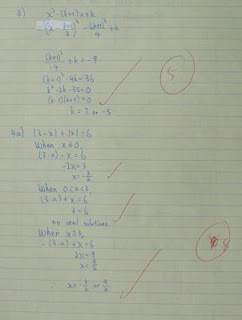 x² - (k+1)x + k
= (x - (k+1)/2)² - (k+1)²/4 + k
-(k+1)²/4 + k = -9
(k+1)² - 4k = 36
k² - 2k - 35 = 0
(k-7)(k+5) = 0
k = 7 or -5
5
4a) |3-x| + |x| = 6
When x≤0,
(3-x) - x = 6
-2x = 3
x = -3/2
When 0<x<3,
(3-x) + x = 6
3 = 6
no real solutions
When x≥3,
-(3-x) + x = 6
2x = 9
x = 9/2
∴ x = -3/2 or 9/2